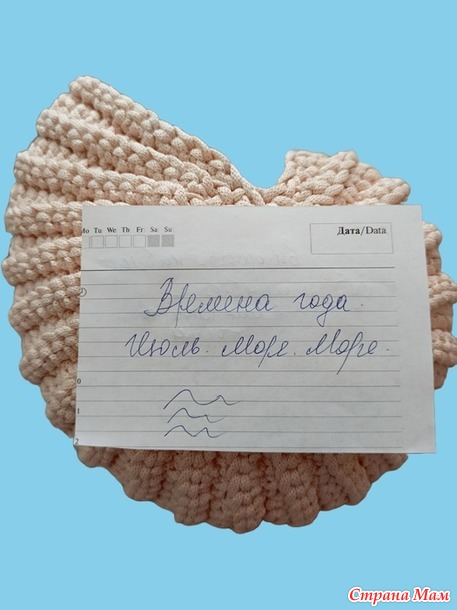 Mo Tu We Th Fr Sa Su
Дата/Data
Времена года.
Июль. Море. Море.
0
1
2
Страна Мам